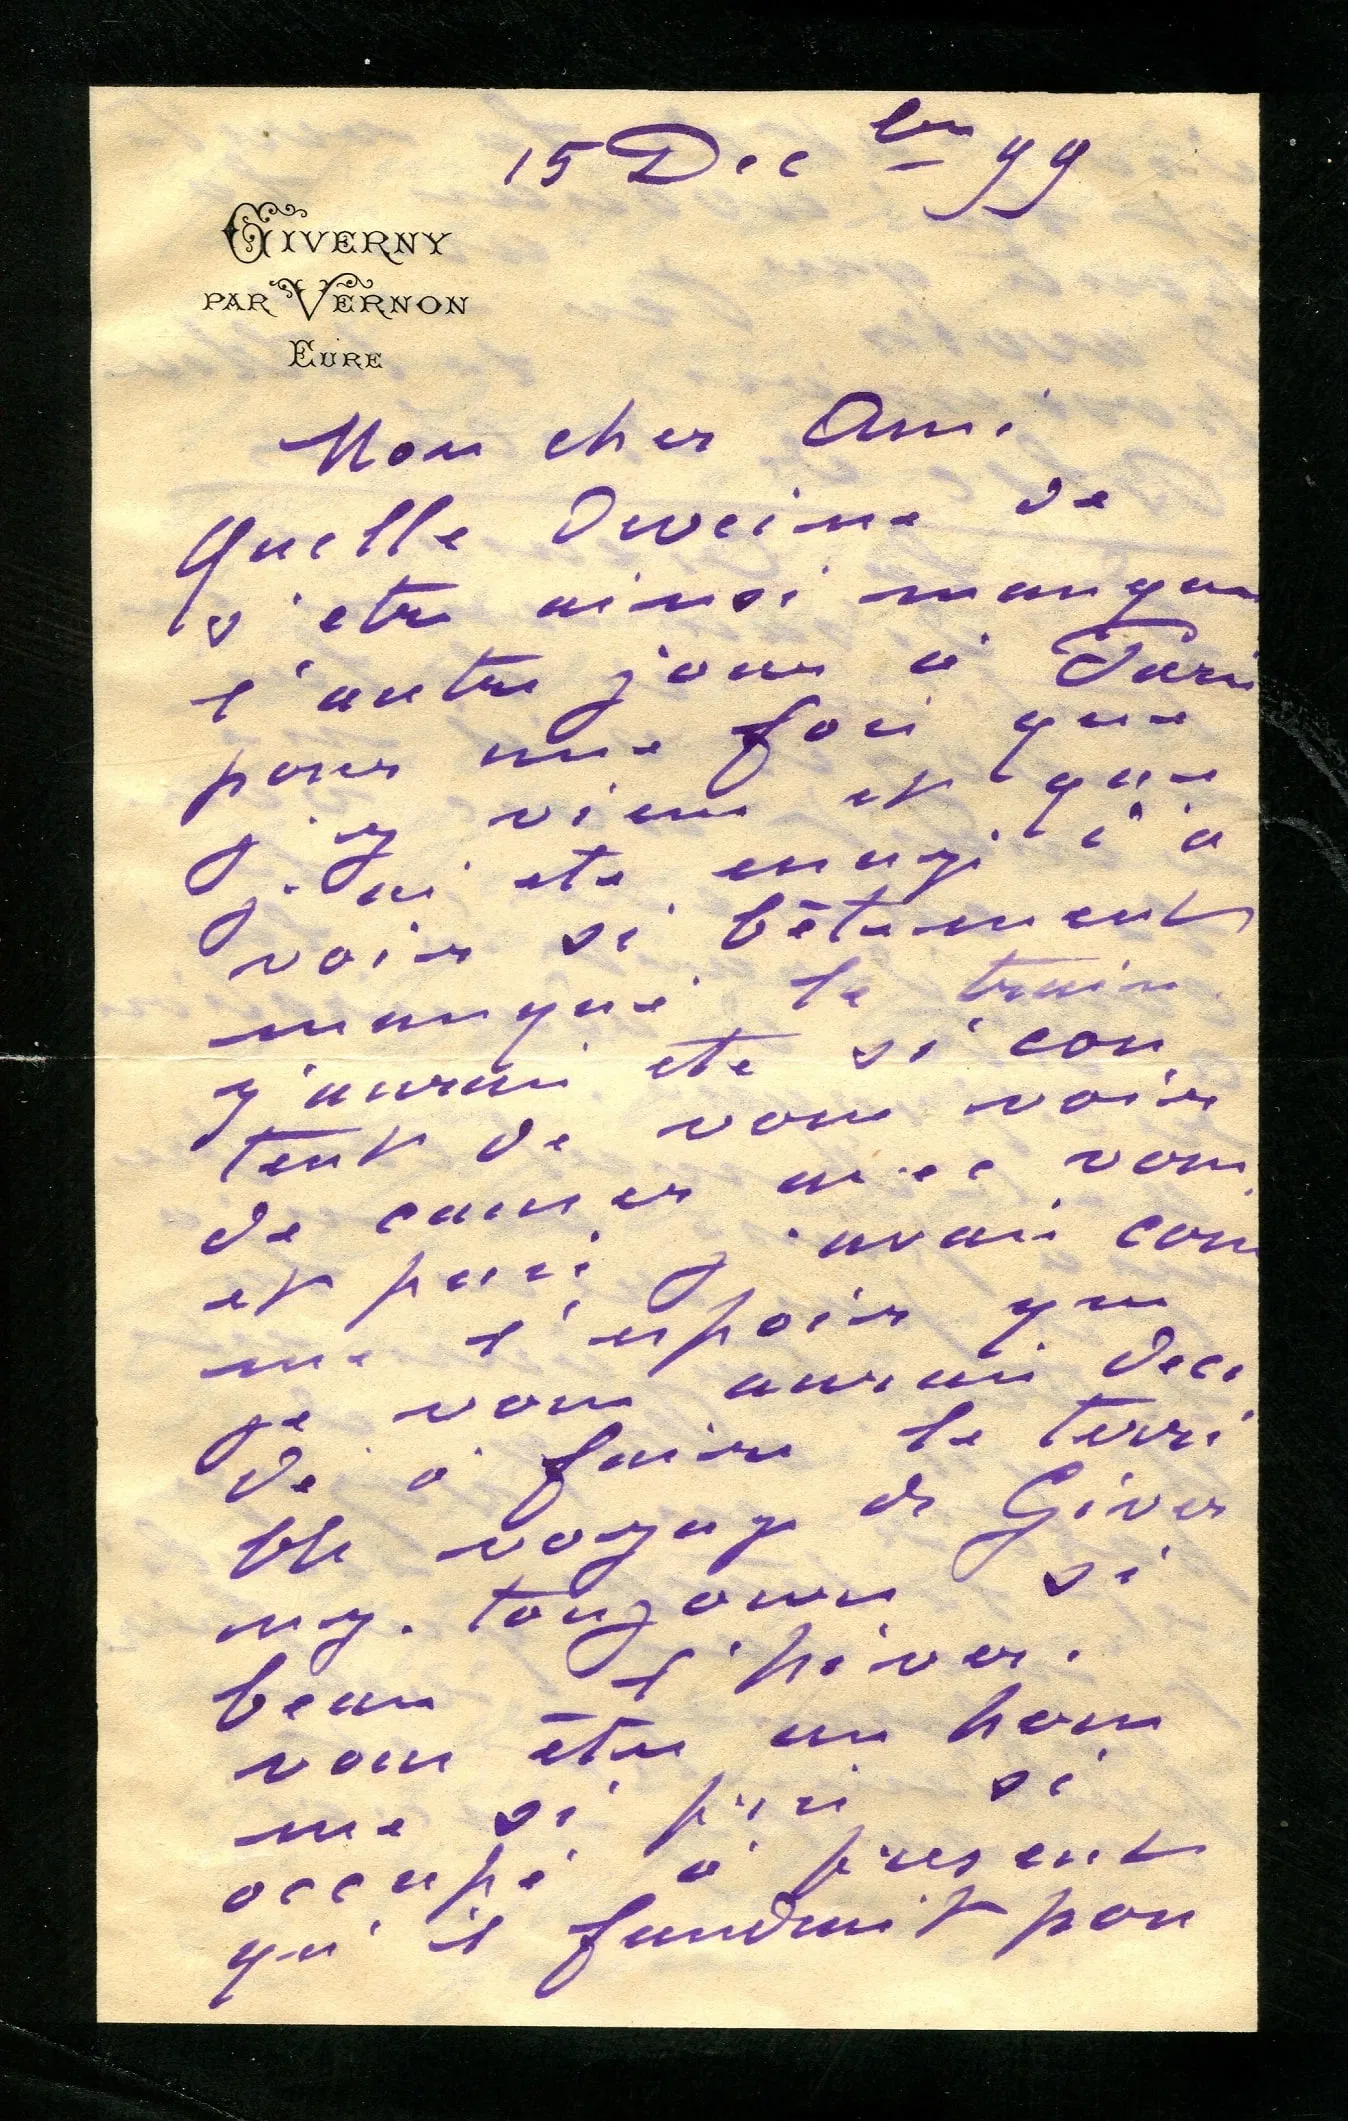 15 Dec bre 99
GIVERNY
PAR VERNON
EURE
Mon cher Ami
Quelle Deveine de
s'etre ainsi manques
l'autre jour à Paris
pour une fois que
j'y viens et que
j'ai ete enragé d'a
voir si bêtement
manqué le train
j'aurais ete si con
tent de vous voir
de causer avec vous
et puis j'avais com
me l'espoir que
je vous aurais deci
dé à faire le terri
ble voyage de Giver
ny. toujours si
beau l'hiver.
vous êtes un hom
me si pris si
occupé à présent
qu'il faudrait pou